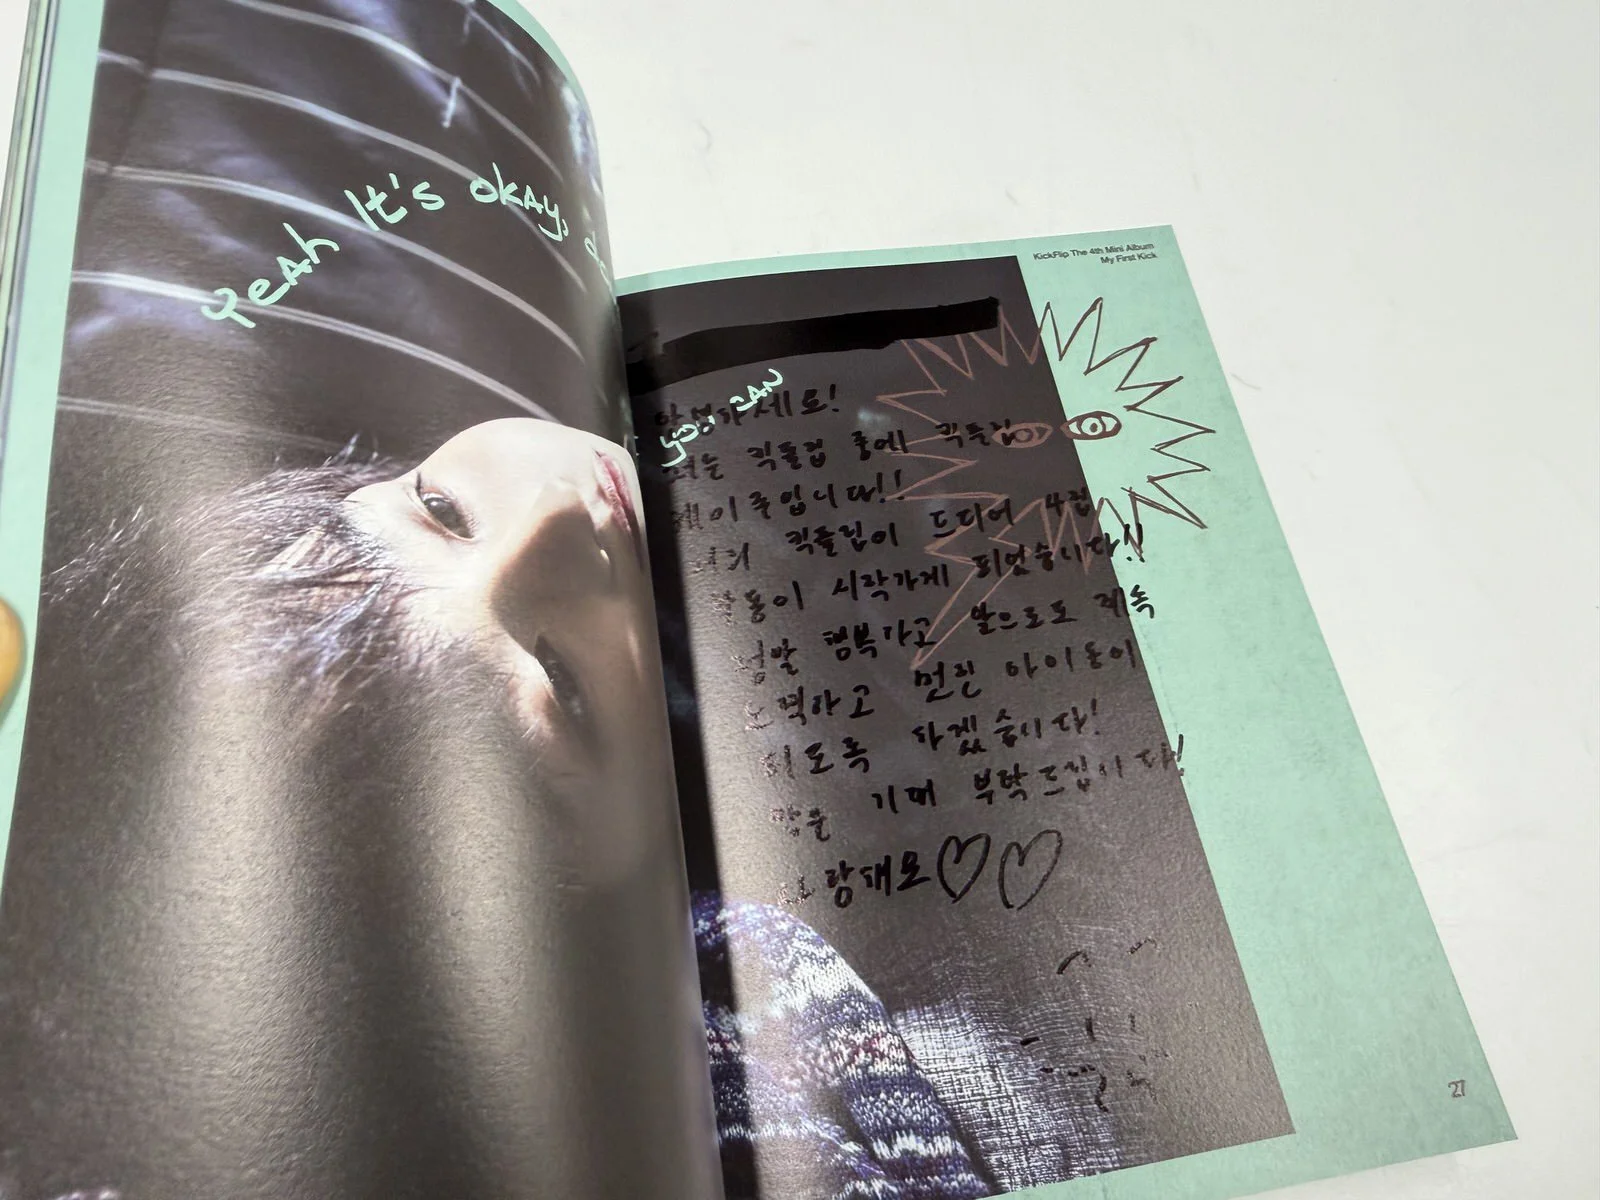 yeah It's okay,
KickFlip The 4th Mini Album
My First Kick
you can
안녕하세요!
저는 킥플립 중에 킥플립
케이주입니다!!
저희 킥플립이 드디어 4컴
활동이 시작하게 되었습니다!!
정말 행복하고 앞으로도 계속
노력하고 멋진 아이돌이
되도록 하겠습니다!
많은 기대 부탁드립니다!
사랑해요♡♡
27